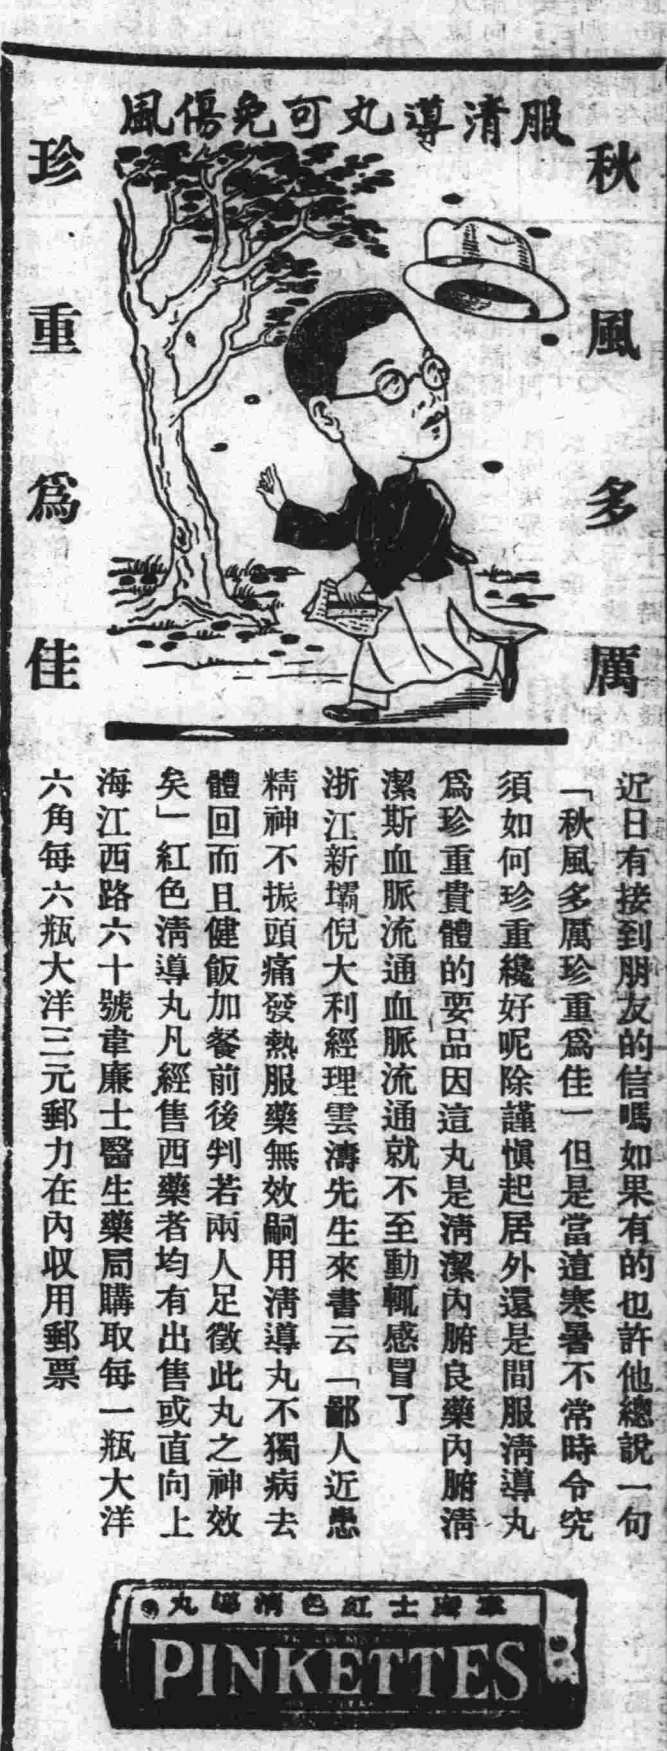 服清導丸可免傷風
秋風多厲
珍重爲佳
近日有接到朋友的信嗎如果有的也許他總說一句
「秋風多厲珍重爲佳」但是當這寒暑不常時令究
須如何珍重纔好呢除謹愼起居外還是間服淸導丸
爲珍重貴體的要品因這丸是淸潔內腑良藥內腑淸
潔斯血脈流通血脈流通就不至動輒感冒了
浙江新壩倪大利經理雲濤先生來書云「鄙人近患
精神不振頭痛發熱服藥無效嗣用淸導丸不獨病去
體回而且健飯加餐前後判若兩人足徵此丸之神效
矣」紅色淸導丸凡經售西藥者均有出售或直向上
海江西路六十號韋廉士醫生藥局購取每一瓶大洋
六角每六瓶大洋三元郵力在內収用郵票
韋廉士紅色清導丸
PINKETTES